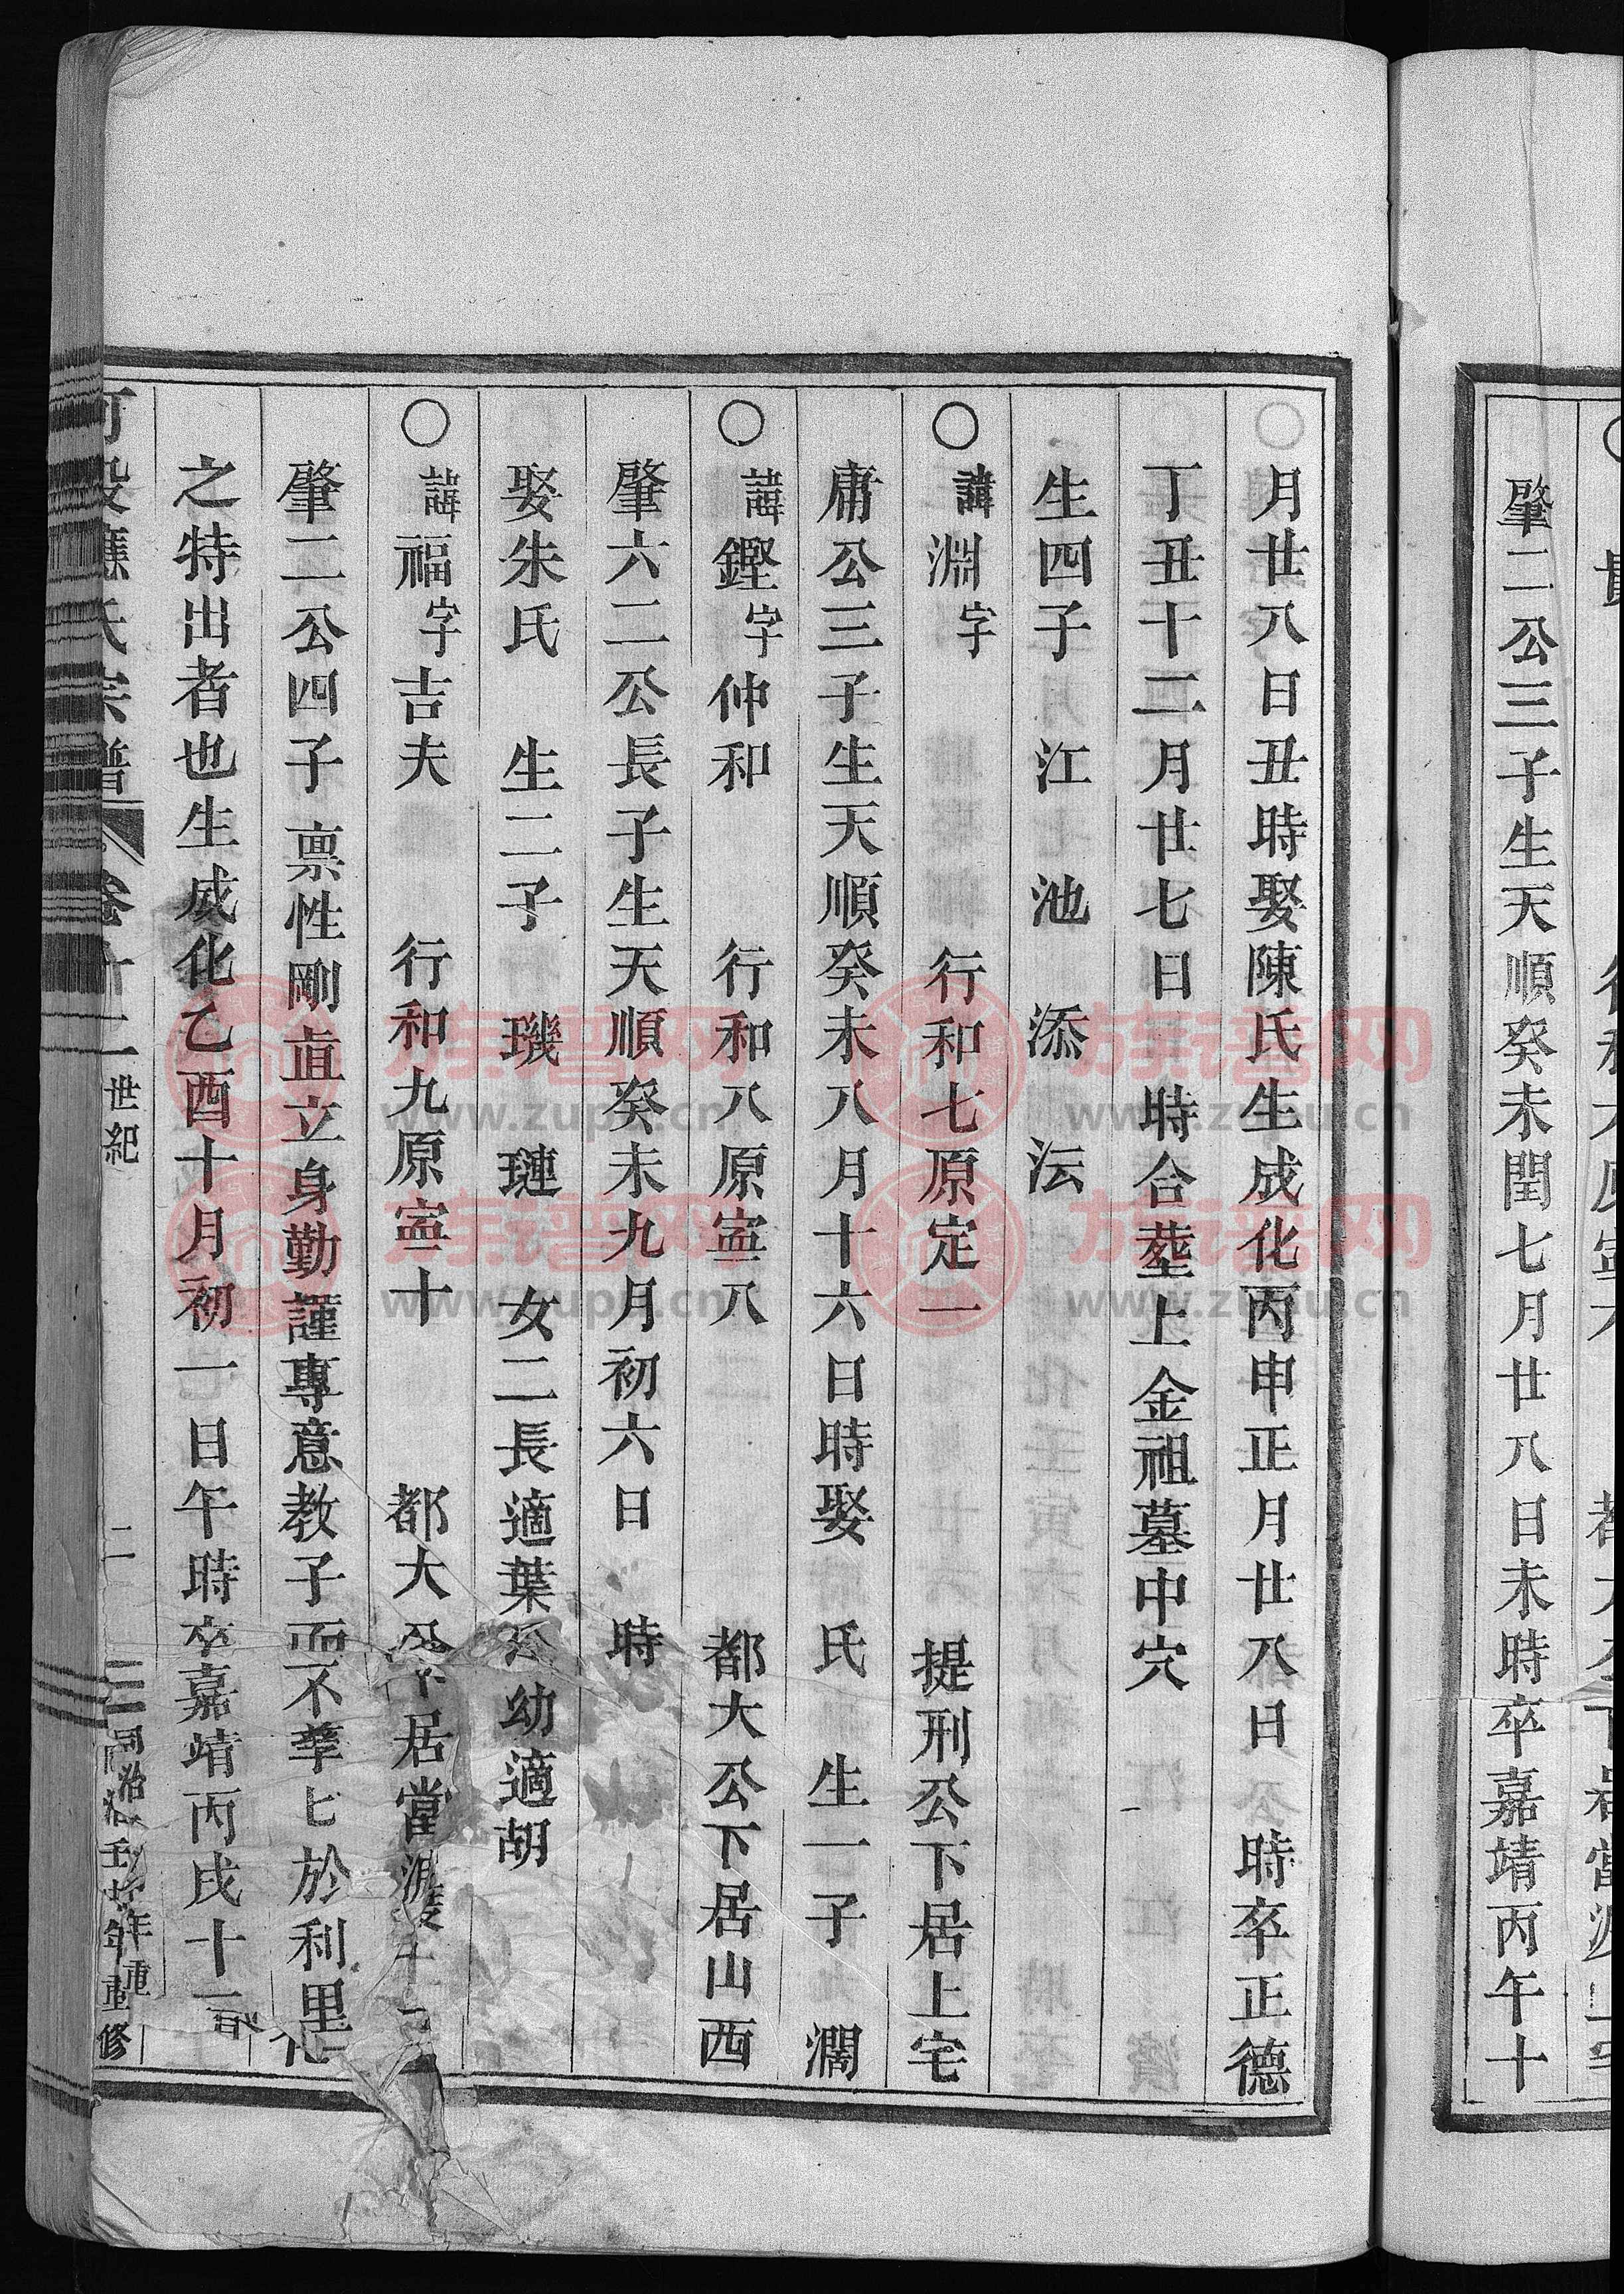 肇二公三子生天順癸未閏七月廿八日未時卒嘉靖丙午十
月廿八日丑時娶陳氏生成化丙申正月廿八日 時卒正德
丁丑十二月廿七日 時合塟上金祖墓中穴
生四子 江 池 添 沄
○諱淵字 行和七原定一 提刑公下居上宅
庸公三子生天順癸未八月十六日時娶 氏 生一子 濶
○諱鏗字仲和 行和八原寍八 都大公下居山西
肇六二公長子生天順癸未九月初六日 時
娶朱氏 生二子 璣 璉 女二長適葉 幼適胡
○諱福字吉夫 行和九原寍十 都大公下居當
肇二公四子稟性剛直立身勤謹專意教子而不孳匕於利里
之特出者也生成化乙酉十月初一日午時卒嘉靖丙戌十一
氏宗譜 卷十一 世紀 二 同治壬 年重修
族谱网
www.zupu.cn
族谱网
www.zupu.cn
族谱网
www.zupu.cn
族谱网
www.zupu.cn